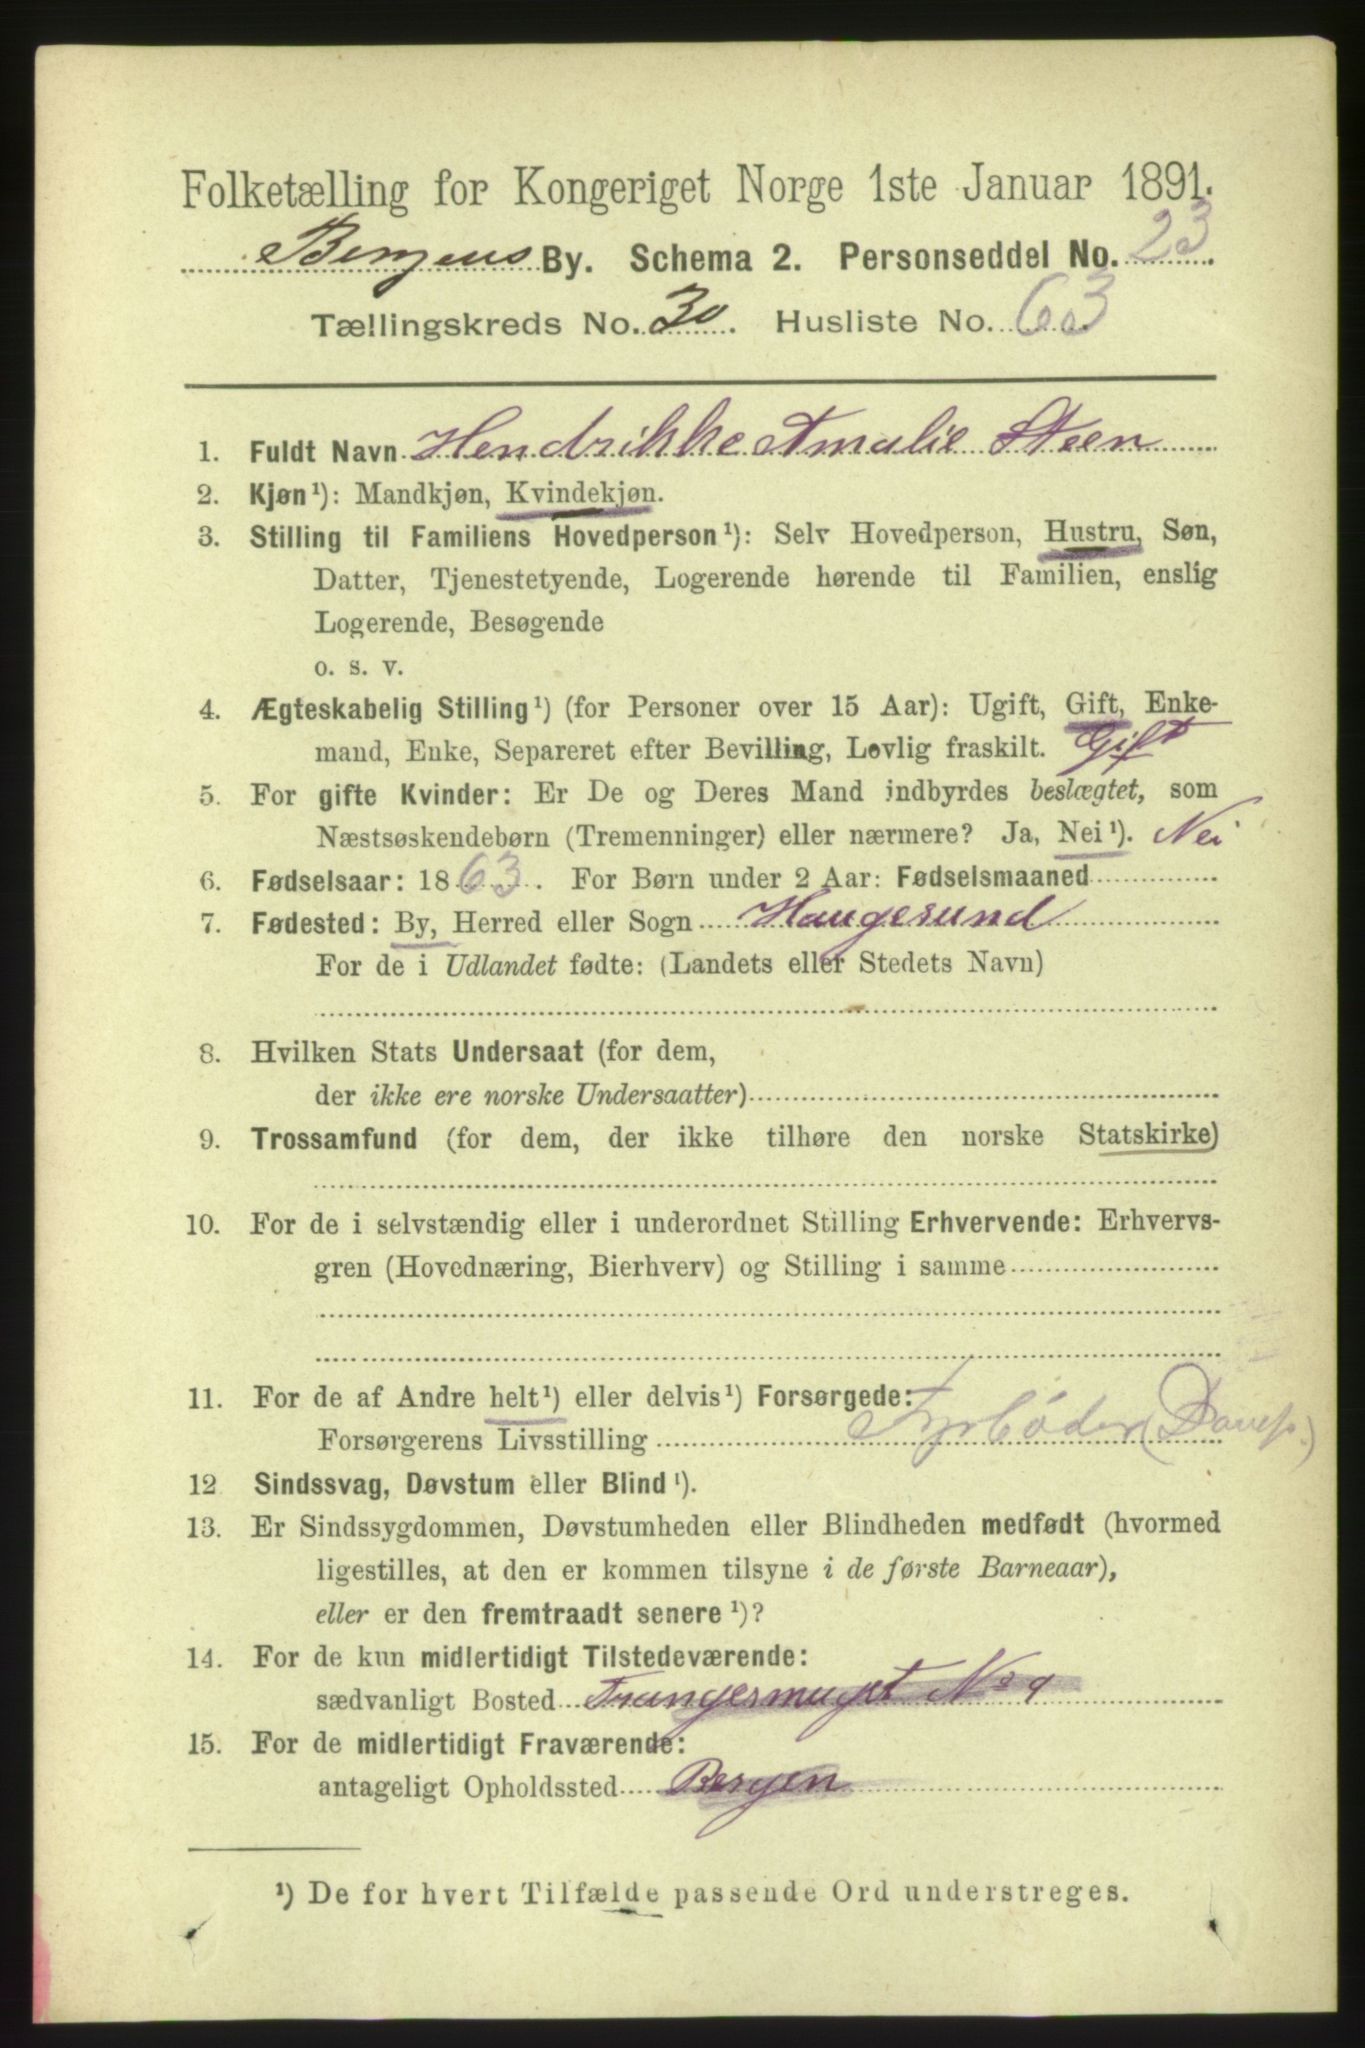 Folketælling for Kongeriget Norge 1ste Januar 1891.
Bergens By. Schema 2. Personseddel No. 23.
Tællingskreds No. 30. Husliste No. 63
1. Fuldt Navn Hendrikke Amalie Steen
2. Kjøn¹): Mandkjøn, Kvindekjøn.
3. Stilling til Familiens Hovedperson¹): Selv Hovedperson, Hustru, Søn,
Datter, Tjenestetyende, Logerende hørende til Familien, enslig
Logerende, Besøgende
o. s. v.
4. Ægteskabelig Stilling¹) (for Personer over 15 Aar): Ugift, Gift, Enke-
mand, Enke, Separeret efter Bevilling, Lovlig fraskilt. Gift
5. For gifte Kvinder: Er De og Deres Mand indbyrdes beslægtet, som
Næstsøskendebørn (Tremenninger) eller nærmere? Ja, Nei¹). Nei
6. Fødselsaar: 1863. For Børn under 2 Aar: Fødselsmaaned
7. Fødested: By, Herred eller Sogn Haugesund
For de i Udlandet fødte: (Landets eller Stedets Navn)
8. Hvilken Stats Undersaat (for dem,
der ikke ere norske Undersaatter)
9. Trossamfund (for dem, der ikke tilhøre den norske Statskirke)
10. For de i selvstændig eller i underordnet Stilling Erhvervende: Erhvervs-
gren (Hovednæring, Bierhverv) og Stilling i samme
11. For de af Andre helt¹) eller delvis¹) Forsørgede:
Forsørgerens Livsstilling Fyrbøder (Dampsk.)
12 Sindssvag, Døvstum eller Blind¹).
13. Er Sindssygdommen, Døvstumheden eller Blindheden medfødt (hvormed
ligestilles, at den er kommen tilsyne i de første Barneaar),
eller er den fremtraadt senere¹)?
14. For de kun midlertidigt Tilstedeværende:
sædvanligt Bosted No 9
15. For de midlertidigt Fraværende:
antageligt Opholdssted Bergen
¹) De for hvert Tilfælde passende Ord understreges.